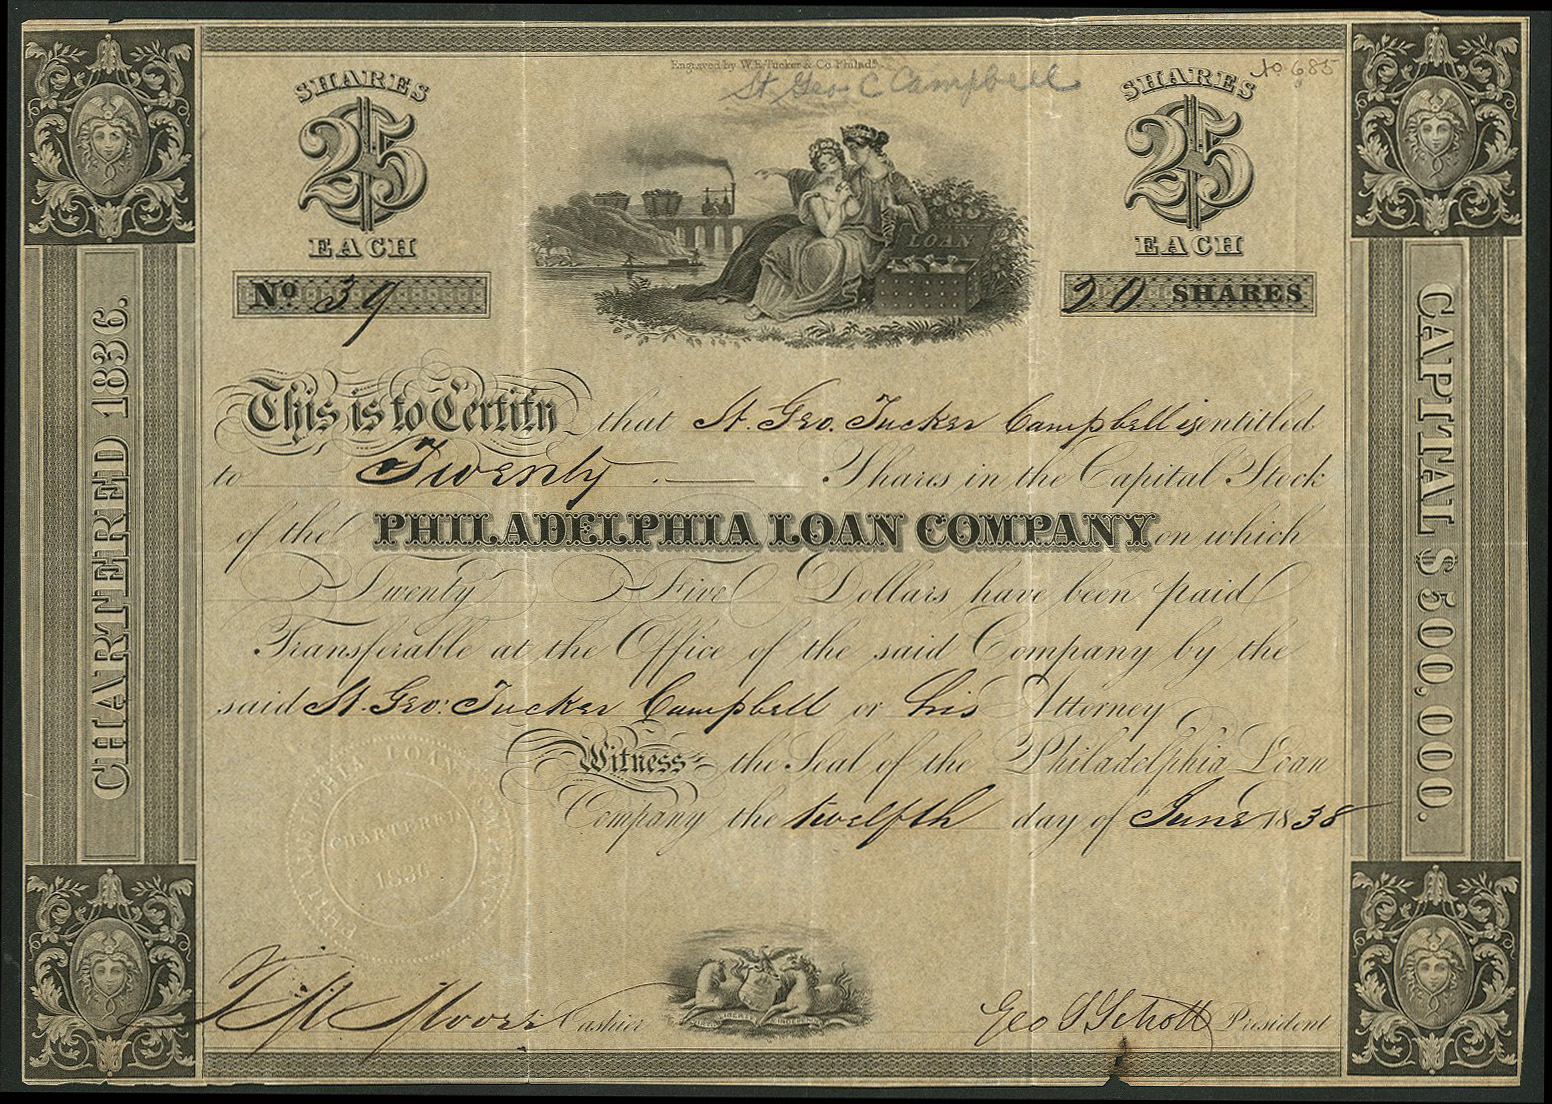 Engraved by W.E. Tucker & Co. Philada.
St. Geo. C Campbell
No 685
SHARES
$25
EACH
SHARES
$25
EACH
LOAN
No 39
20 SHARES
CHARTERED 1836.
CAPITAL $500,000.
This is to Certify that St. Geo. Tucker Campbell is entitled
to Twenty Shares in the Capital Stock
of the PHILADELPHIA LOAN COMPANY on which
Twenty Five Dollars have been paid
Transferable at the Office of the said Company by the
said St. Geo: Tucker Campbell or his Attorney
Witness the Seal of the Philadelphia Loan
Company the twelfth day of June 1838
PHILADELPHIA LOAN COMPANY
CHARTERED
1836
Cashier
Geo S Schott President